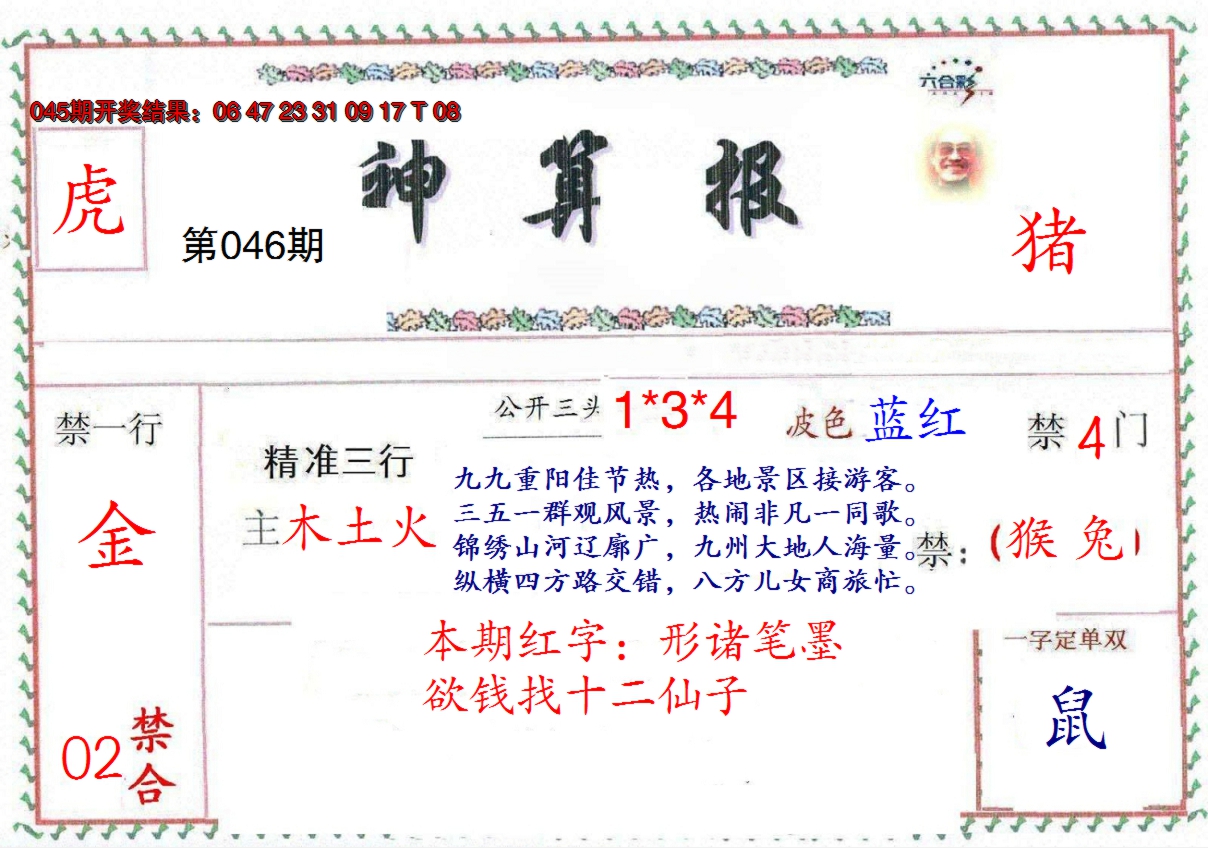 六合彩
045期开奖结果：06 47 23 31 09 17 T 08
虎
第046期
神算报
猪
禁一行
金
02
禁合
精准三行
主木土火
公开三头 1*3*4
波色 蓝红
禁4门
禁：(猴 兔)
九九重阳佳节热，各地景区接游客。
三五一群观风景，热闹非凡一同歌。
锦绣山河辽廓广，九州大地人海量。
纵横四方路交错，八方儿女商旅忙。
本期红字：形诸笔墨
欲钱找十二仙子
一字定单双
鼠